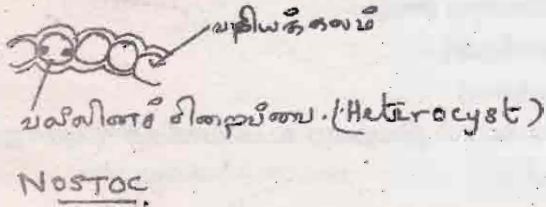 பதியக்கலம்
பல்லினச் சிறைப்பை. (Heterocyst)
NOSTOC